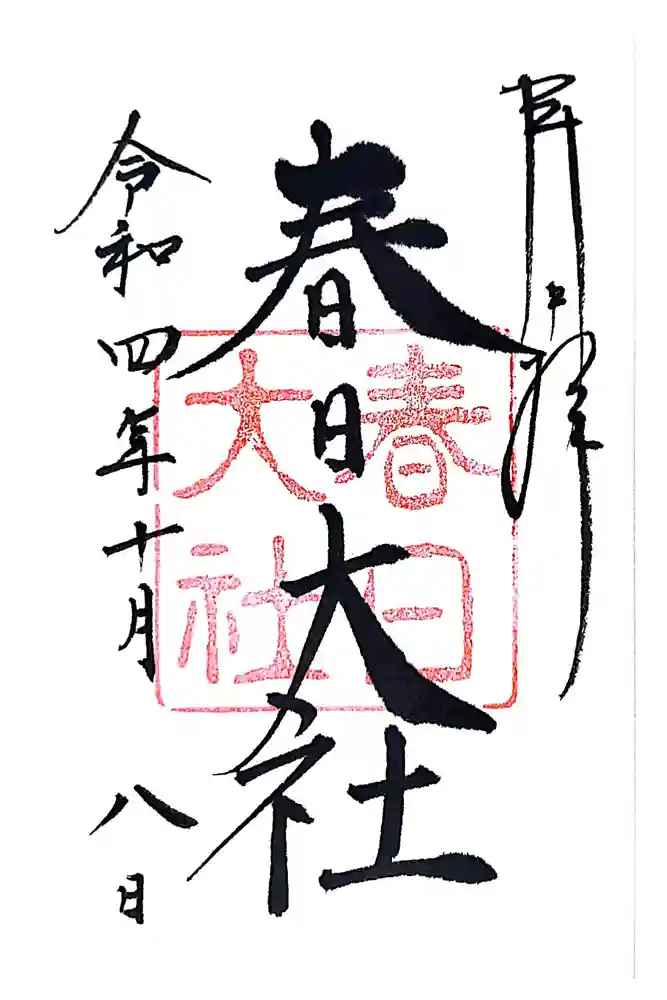 春日大社
春日
大社
令和四年十月八日